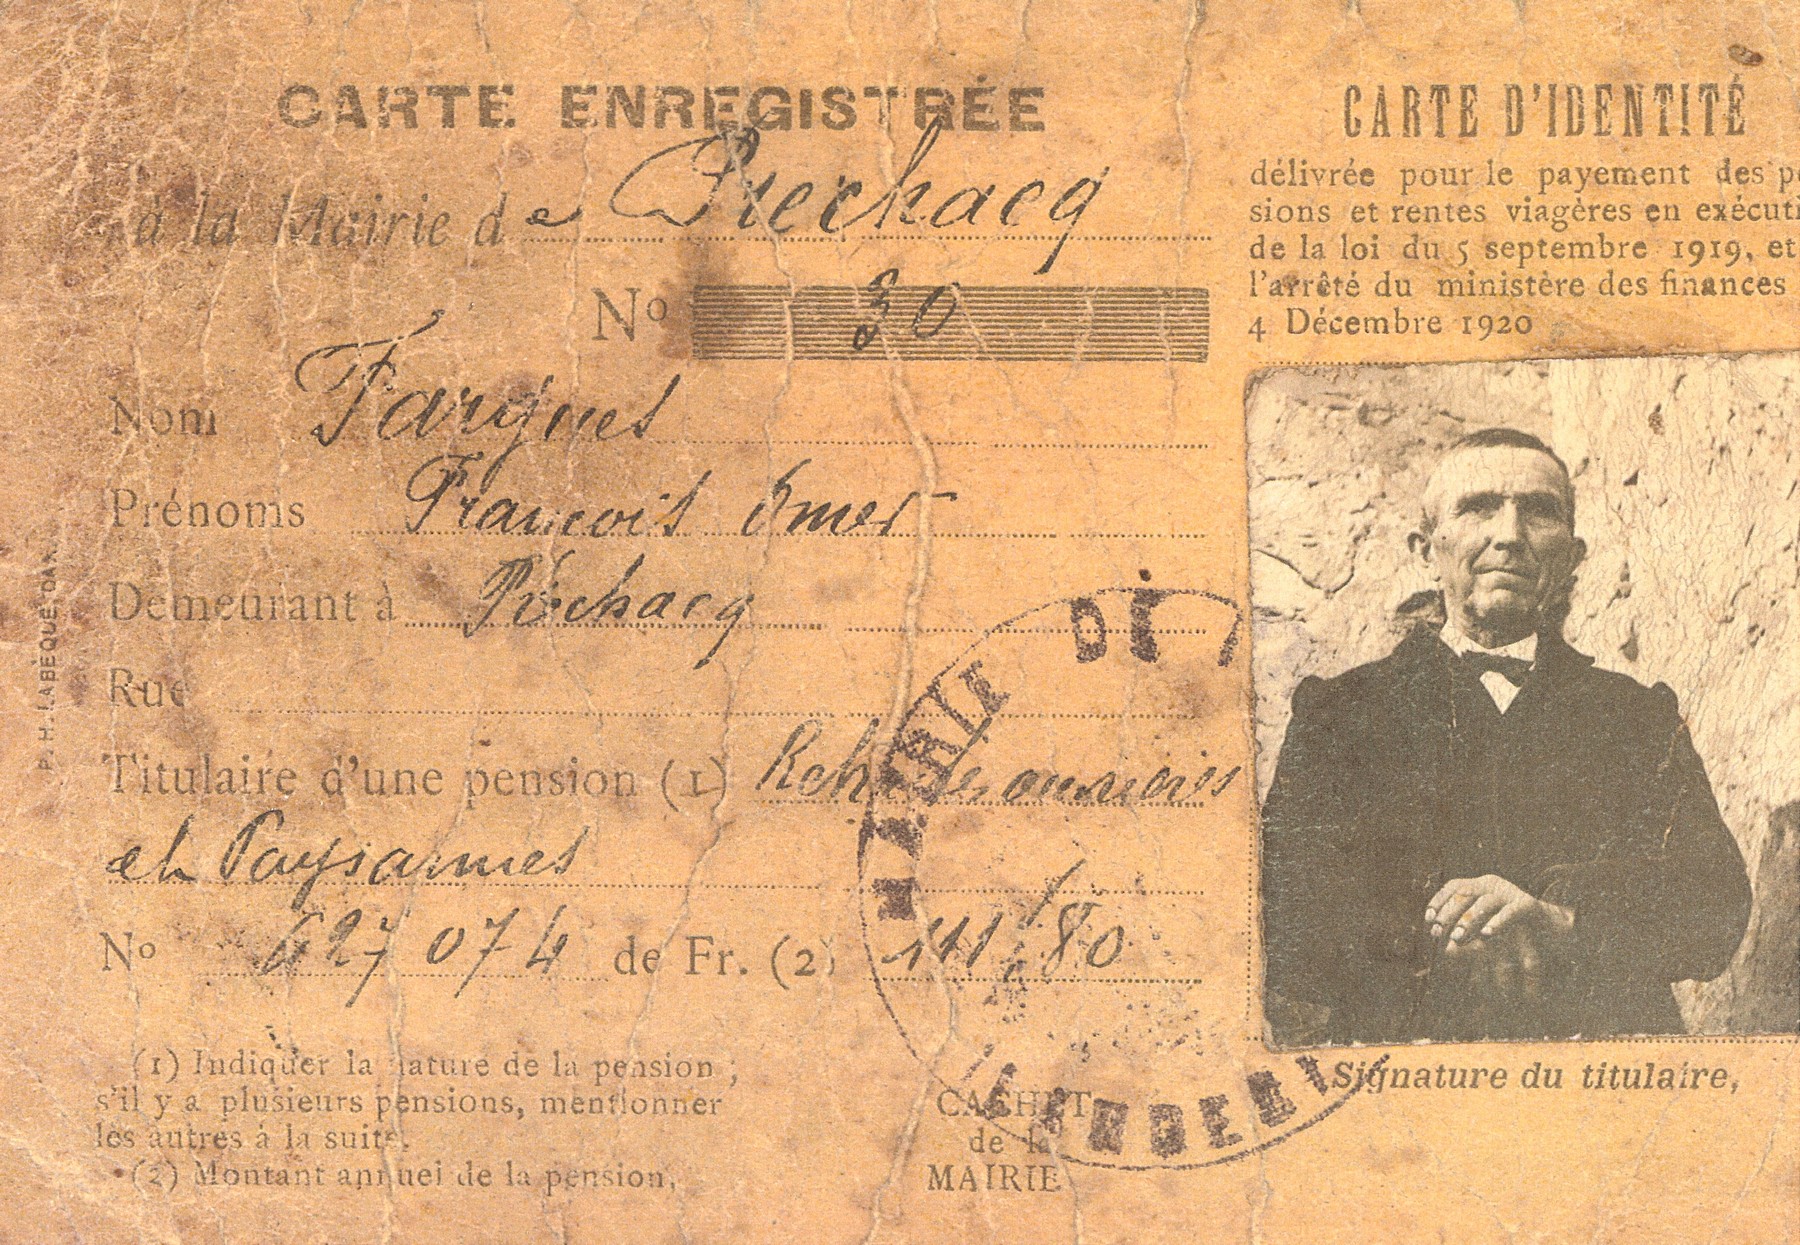 CARTE ENREGISTRÉE
à la Mairie de Prechacq
No 30
Nom Fargues
Prénoms Francois Omer
Demeurant à Préchacq
Rue
Titulaire d'une pension (1) ouvrières
et Paysannes
No 427 074 de Fr. (2) 80
(1) Indiquer la nature de la pension ;
s'il y a plusieurs pensions, mentionner
les autres à la suite.
(2) Montant annuel de la pension,
P. H. LABÈQUE, DAX
MAIRIE DE
CACHET
de la
MAIRIE
CARTE D'IDENTITÉ
délivrée pour le payement des pe
sions et rentes viagères en exécuti
de la loi du 5 septembre 1919, et
l'arrêté du ministère des finances
4 Décembre 1920
Signature du titulaire,